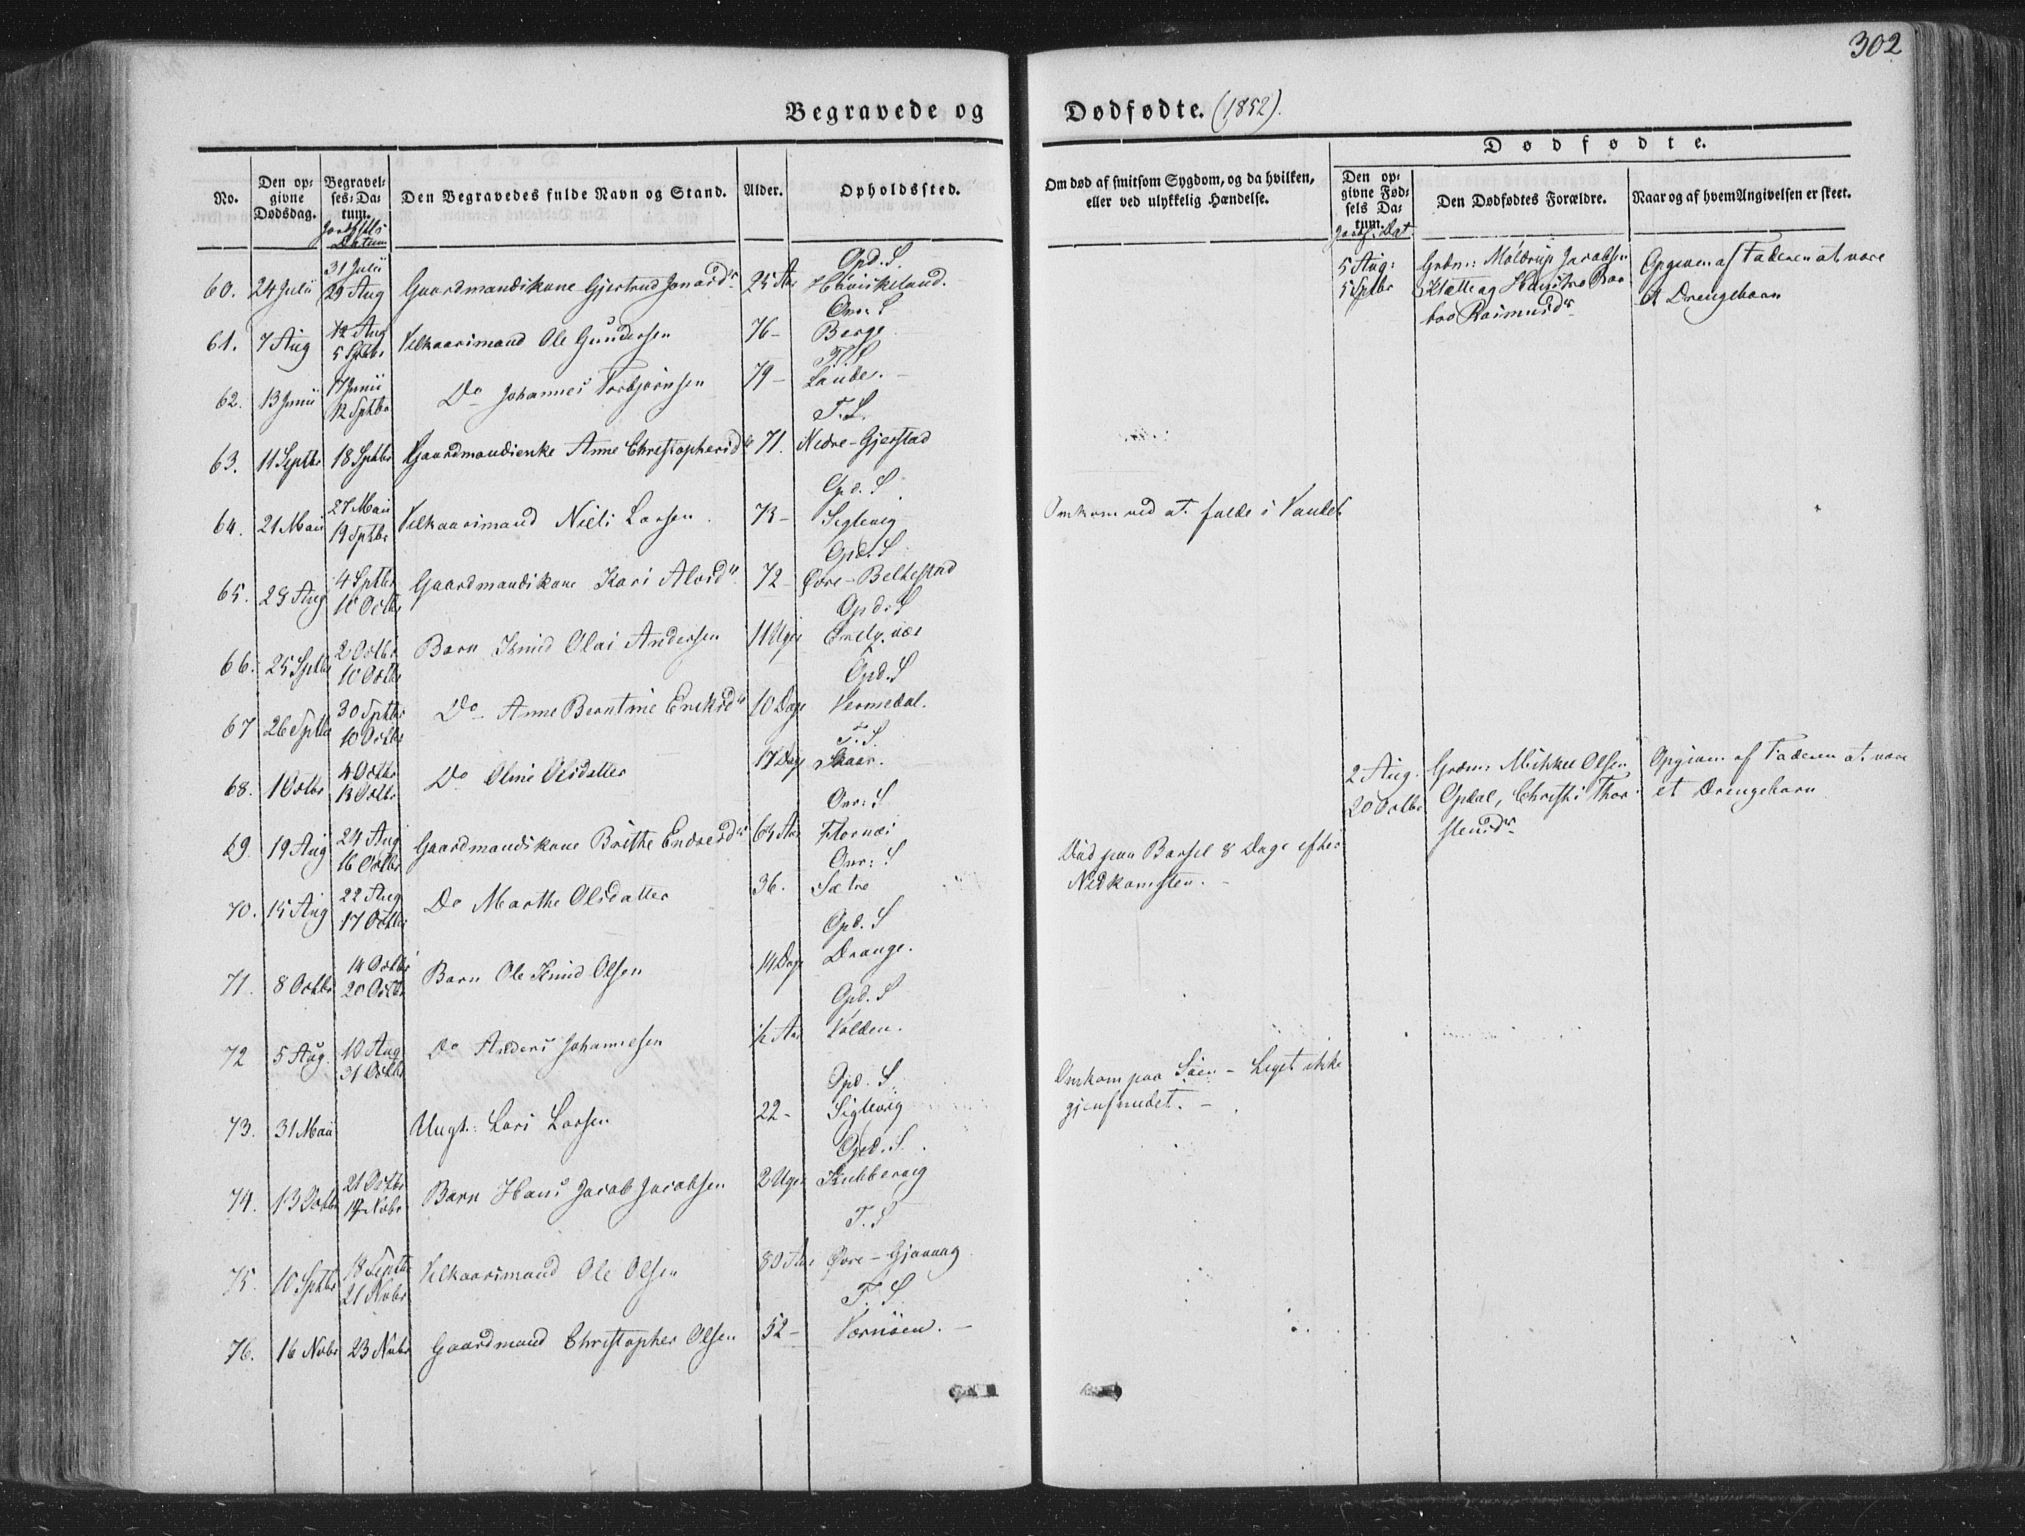 302
Begravede og Dødfødte. (1852).
No.
Den opgivne Dødsdag.
Begravelses-Datum.
Jordf Datum
Den Begravedes fulde Navn og Stand.
Alder.
Opholdssted.
Om død af smitsom Sygdom, og da hvilken, eller ved ulykkelig Hændelse.
Dødfødte.
Den opgivne Fødsels Datum.
Jordf: Dat
Den Dødfødtes Forældre.
Naar og af hvem Angivelsen er skeet.
60. 24 Julii 31 Julii 29 Aug Gaardmandskone Gjertrud 25 Aar Opd. S.
5 Aug: 5 Sptbr Jacobsen Klætte og Opgiven af Faderen at være et Drengebarn
61. 7 Aug 12 Aug 5 Sptbr Velkaarsmand Ole Gundersen 76- Berge
62. 13 Junii 17 Junii 12 Sptbr Do Johannes Torbjørnsen 79- T. S.
63. 11 Septbr 18 Sptbr Gaardmandsenke Anne Christophersdtr 71. T. S. Nedre-Gjerstad
64. 21 Maii 27 Maii 19 Sptbr Velkaarsmand Niels Larsen 73- Opd. S. Siglevig
Omkom ved at falde i Vandet
65. 28 Aug 4 Sptbr 10 Octbr Gaardmandskone Kari 72- Opd. S Øvre-Belkestad
66. 25 Sptbr 2 Octbr 10 Octbr Barn Knud Olai Andersen 11 Uger Opd: S
67 26 Sptbr 30 Sptbr 10 Octbr Do Anne Berntine 10 Dage Opd. S Vermedal.
68. 1 Octbr 4 Octbr 13 Octbr Do Oline Olsdatter 17 Dage T. S. Skaar.
2 Aug. 20 Octbr Grdm: Mikkel Olsen Opdal, Christi Thorstensdtr Opgiven af Faderen at være et Drengebarn
69. 19 Aug 24 Aug 16 Octbr Gaardmandskone Brithe Endresdtr Onr: S
70. 15 Aug 22 Aug 17 Octbr Do Marthe Olsdatter 36. Onr: S Sætre
Død paa Barsel 8 Dage efter Nedkomsten.
71. 8 Octbr 14 Octbr 20 Octbr Barn Ole Knud Olsen 14 Dage Opd. S Drange.
72 5 Aug 10 Aug 31 Octbr Do Anders Johannesen ½ Aar Opd. S Volden.
73. 31 Maii Ungk: Lars Larsen 22- Opd. S. Siglevig
Omkom paa Søen - Liget ikke gjenfundet. -
74. 13 Octbr 21 Octbr Barn Hans Jacob Jacobsen 2 Uger Opd. S. Kubbevig
75. 10 Sptbr 18 Septbr 21 Nvbr Velkaarsmand Ole Olsen 80 Aar T. S Øvre-
76. 16 Nvbr 23 Nvbr Gaardmand Christopher Olsen 52- T. S. Værnøen. -